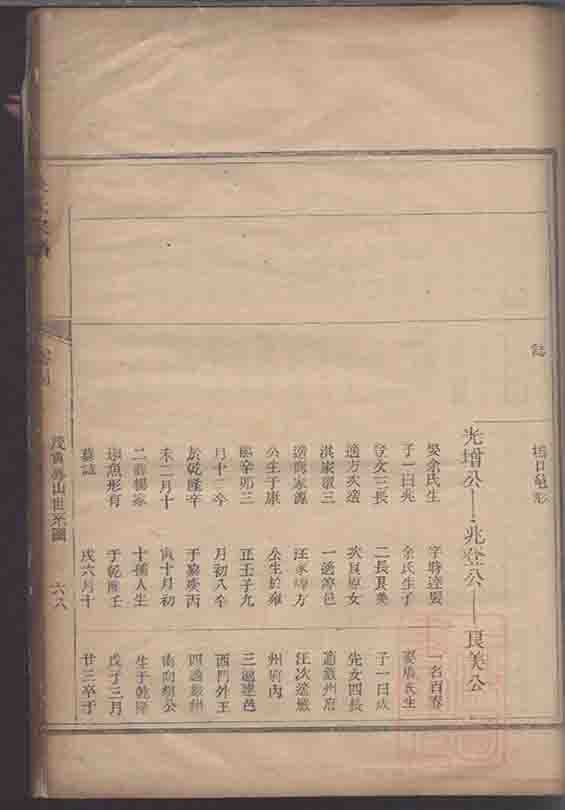 誌
橋口龜形
光增公——兆登公——良美公
娶余氏生
子一曰兆
登女三長
適方次適
淇家三
適家源
公生于康
熙辛卯三
月十二卒
於乾隆辛
未二月十
二葬楊家
塢魚形有
墓誌
字時達娶
余氏生子
二長良美
次良厚女
一適淳邑
汪家方
公生於雍
正壬子九
月初八卒
于嘉慶丙
寅十月初
十孺人生
于乾隆壬
戌六月十
一名百春
娶氏生
子一曰成
先女四長
適嚴州府
汪次適嚴
州府內
三適建邑
西門外王
四適嚴州
南向胡公
生于乾隆
戊子三月
廿三卒于
山世系圖
六八